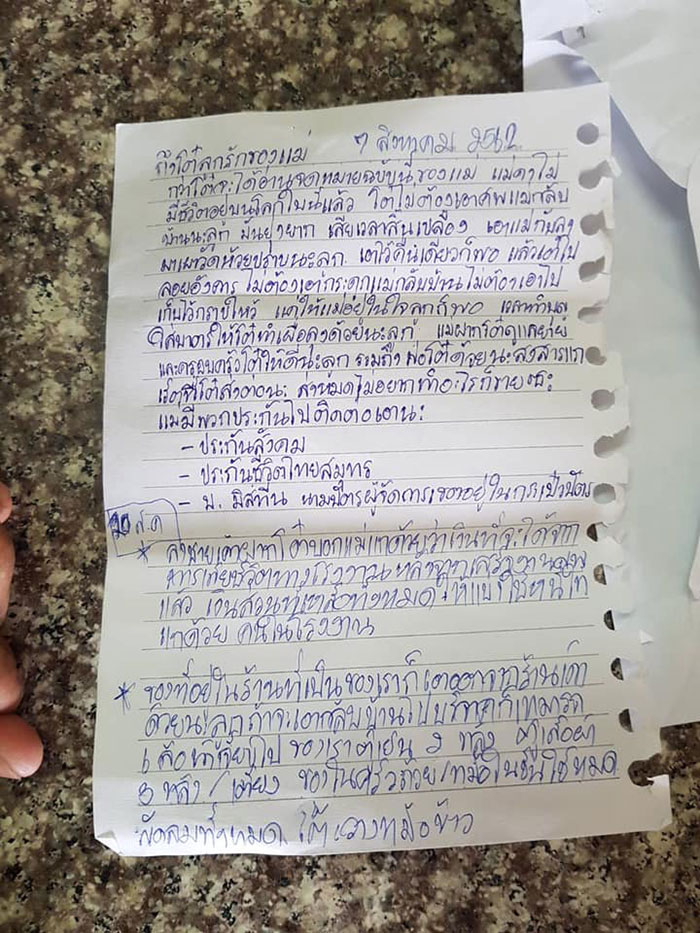 ถึงโต้ลูกรักของแม่ 7 สิงหาคม 2562
กว่าโต้จะได้อ่านจดหมายฉบับนี้ของแม่ แม่คงไม่
มีชีวิตอยู่บนโลกใบนี้แล้ว โต้ไม่ต้องเอาศพแม่กลับ
บ้านนะลูก มันยุ่งยาก เสียเวลาสิ้นเปลือง เอาแม่กับลุง
มาเผาวัดห้วยปราบนะลูก เอาไว้คืนเดียวก็พอ แล้วเอาไป
ลอยอังคาร ไม่ต้องเอากระดูกแม่กลับบ้าน ไม่ต้องเอาไป
เก็บไว้กราบไหว้ แค่ให้แม่อยู่ในใจลูกก็พอ เวลาทำบุญ
ใส่บาตรให้โต้ทำเผื่อลุงด้วยนะลูก แม่ฝากโต้ดูแลยุ้ย
และครอบครัวโต้ให้ดีนะลูก รวมถึงพ่อโต้ด้วยนะสงสารแก
รถที่โต้ส่งต่อนะ ส่งหมดไม่อยากทำอะไรก็ขายซะ
แม่มีพวกประกันไปติดต่อเอานะ
- ประกันสังคม
- ประกันชีวิตไทยสมุทร
- บ. มิสทีน นามบัตรผู้จัดการเขตอยู่ในกระเป๋าบัตร
10 ส.ค
* ลุงชายเค้าฝาก โต้บอกแม่แกด้วยว่าเงินที่จะได้จาก
การเสียชีวิตทางโรงงาน หลังจากเสร็จงานศพ
แล้ว เงินส่วนที่เหลือทั้งหมด ให้แบ่งใช้หนี้ให้
แกด้วย คนในโรงงาน
* ของที่อยู่ในร้านที่เป็นของเราก็เอาออกจากร้านเค้า
ด้วยนะลูก ถ้าจะเอากลับบ้านไปบริจาคก็เหมารถ
ไป ของเราตู้เย็น 2 หลัง ตู้เสื้อผ้า
3 หลัง / เตียง ของในครัวถ้วย/หม้อ ในชั้นใช้หมด
พัดลมทั้งหมด โต๊ะวางหม้อข้าว